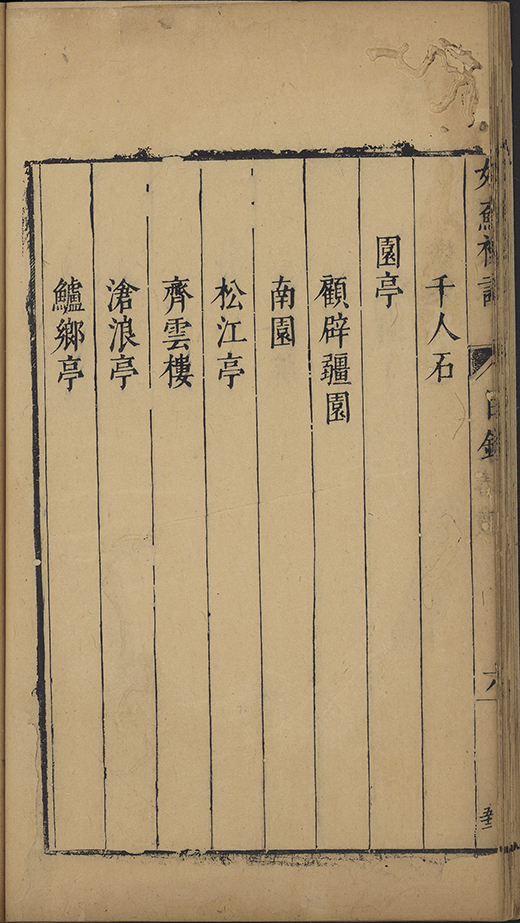 姑蘇雜詠
目錄
六
千人石
園亭
顧辟疆園
南園
松江亭
齊雲樓
滄浪亭
鱸鄉亭